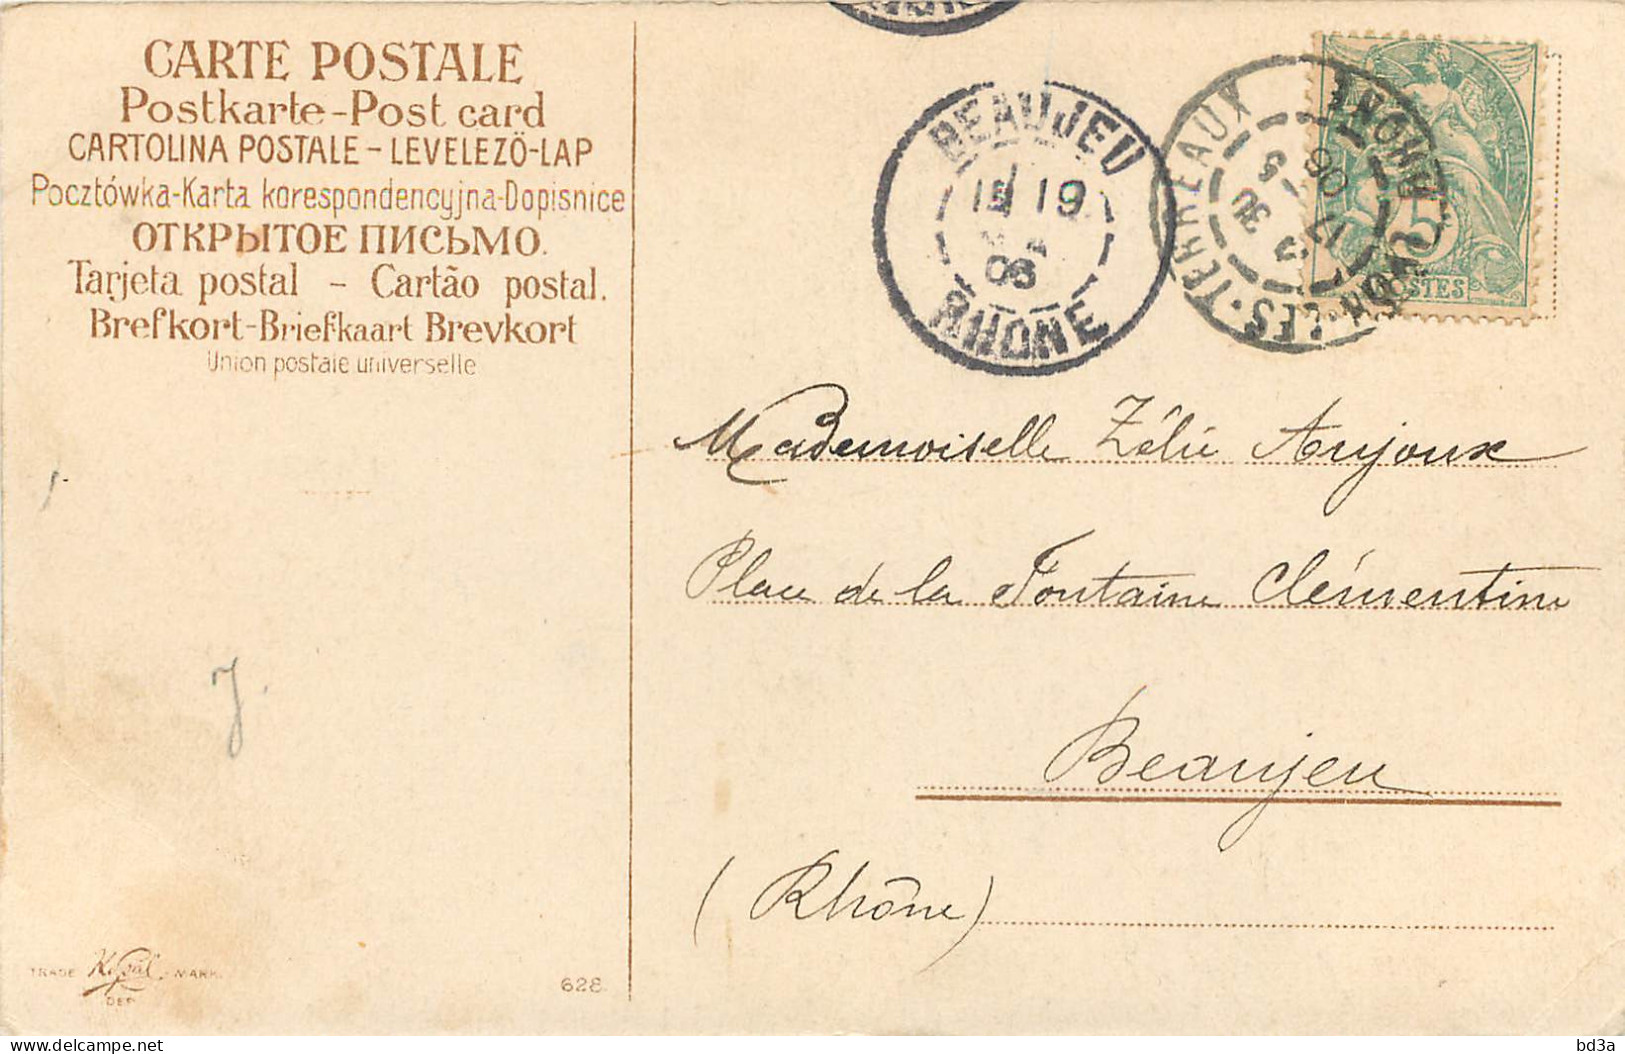 CARTE POSTALE
Postkarte-Post card
CARTOLINA POSTALE - LEVELEZÖ-LAP
Pocztówka-Karta korespondencyjna-Dopisnice
ОТКРЫТОЕ ПИСЬМО.
Tarjeta postal - Cartão postal.
Brefkort-Briefkaart Brevkort
Union postale universelle
BEAUJEU
19
06
RHONE
LES-TERREAUX
RHONE
17
5
06
5
POSTES
Mademoiselle Zélie Aujoux
Place de la Fontaine Clémentine
Beaujeu
(Rhône)
J.
TRADE MARK.
DEP.
628
bd3a